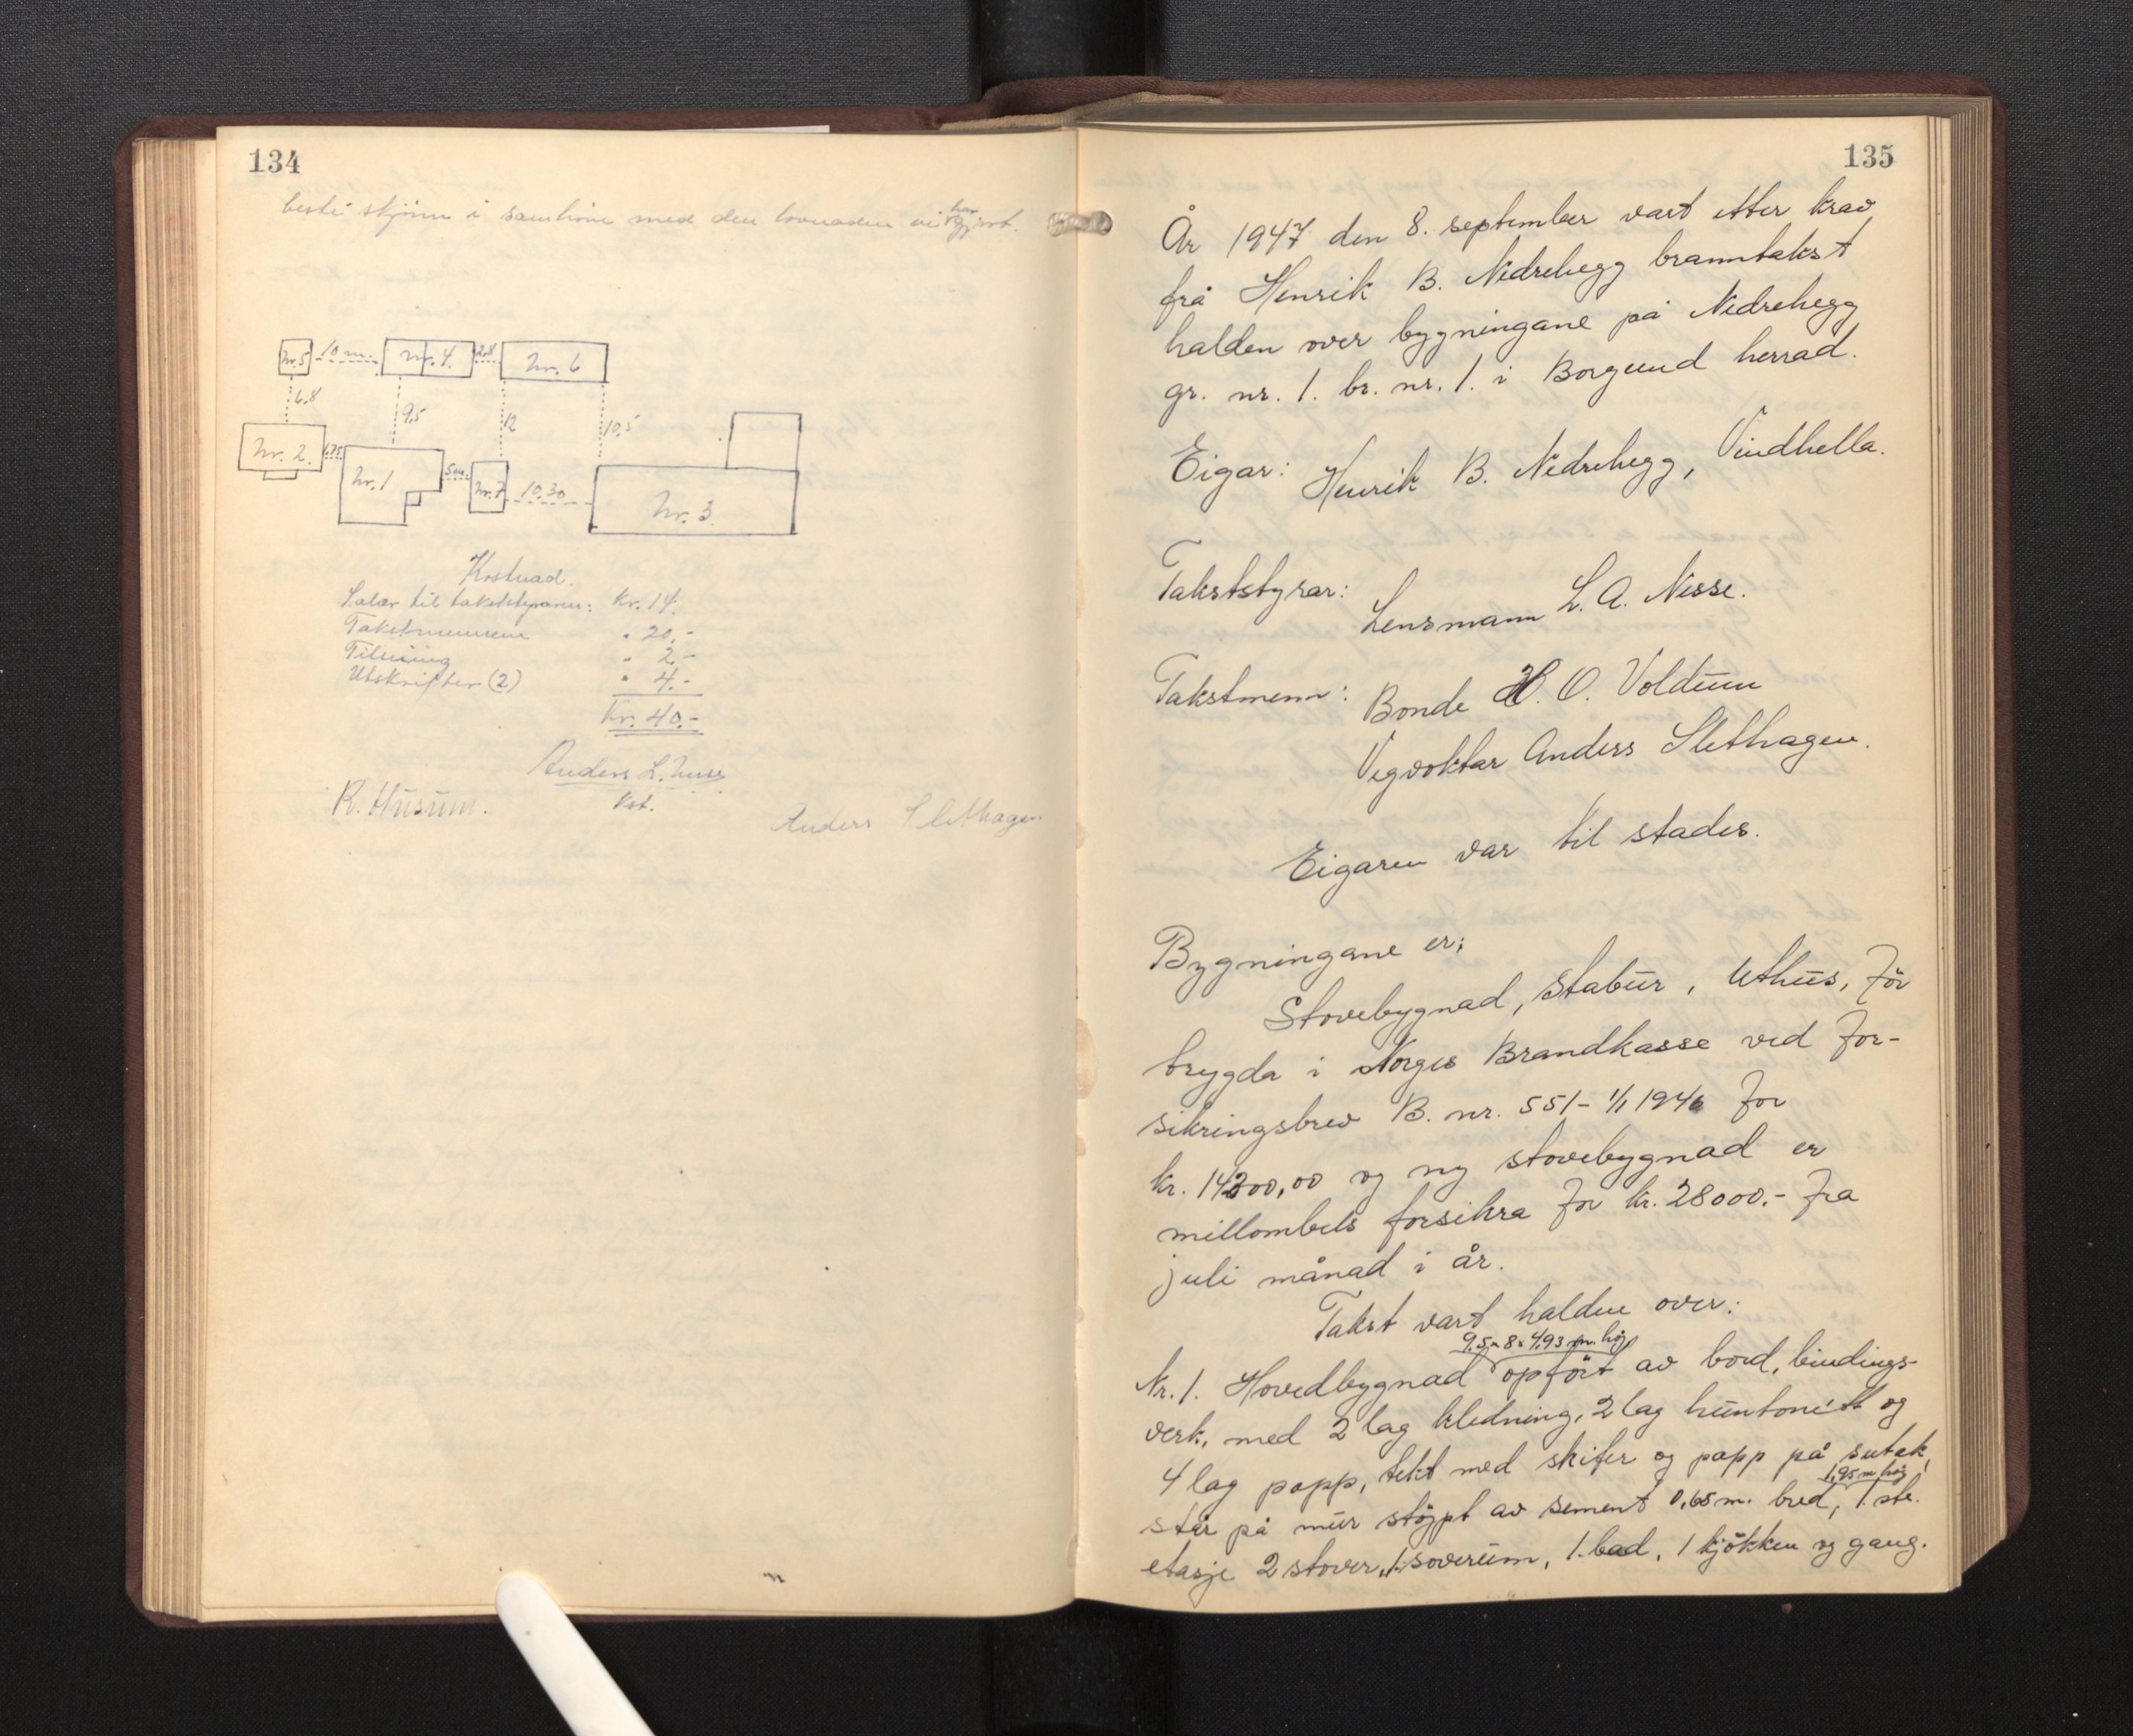 134
beste skjönn i samhöve med den lovnaden vi har gjort.
Nr. 5
10 m.
Nr. 4.
2.8
Nr. 6
6.8
9,5
12
10,5
Nr. 2.
Nr. 1
5 m.
Nr. 7
10.30
Nr. 3.
Kostnad.
Salær til takststyraren: Kr. 14.
Takstmennene " 20.-
" 2.-
Utskrifter (2) " 4.-
Kr. 40.-
Anders L.
R. Husum.
Kst.
Anders Slethagen
135
År 1947 den 8. september vart etter krav
frå Henrik B. Nedrehegg branntakst
halden over bygningane på Nedrehegg
gr. nr. 1. br. nr. 1. i Borgund herrad.
Eigar: Henrik B. Nedrehegg, Vindhella.
Takststyrar: Lensmann L. A. Nesse.
Takstmenn: Bonde H. O. Voldum
Vegvoktar Anders Slethagen.
Eigaren var til stades.
Bygningane er;
Stovebygnad, Stabur, Uthus, för
trygda i Norges Brandkasse ved for-
sikringsbrev B. nr. 551- 1/1 1946 for
kr. 14200,00 og ny stovebygnad er
millombels forsikra for kr. 28000.- fra
juli månad i år.
Takst vart halden over:
9,5 x 8 x 4,93 m. høg
Nr. 1. Hovedbygnad opfört av bord, bindings-
verk, med 2 lag kledning, 2 lag huntonitt og
4 lag papp, tekt med skifer og papp på sutak,
1,95 m høg
står på mur stöypt av sement 0,65 m. bred, 1ste.
etasje 2 stover, 1 soverum, 1. bad, 1 kjökken og gang.